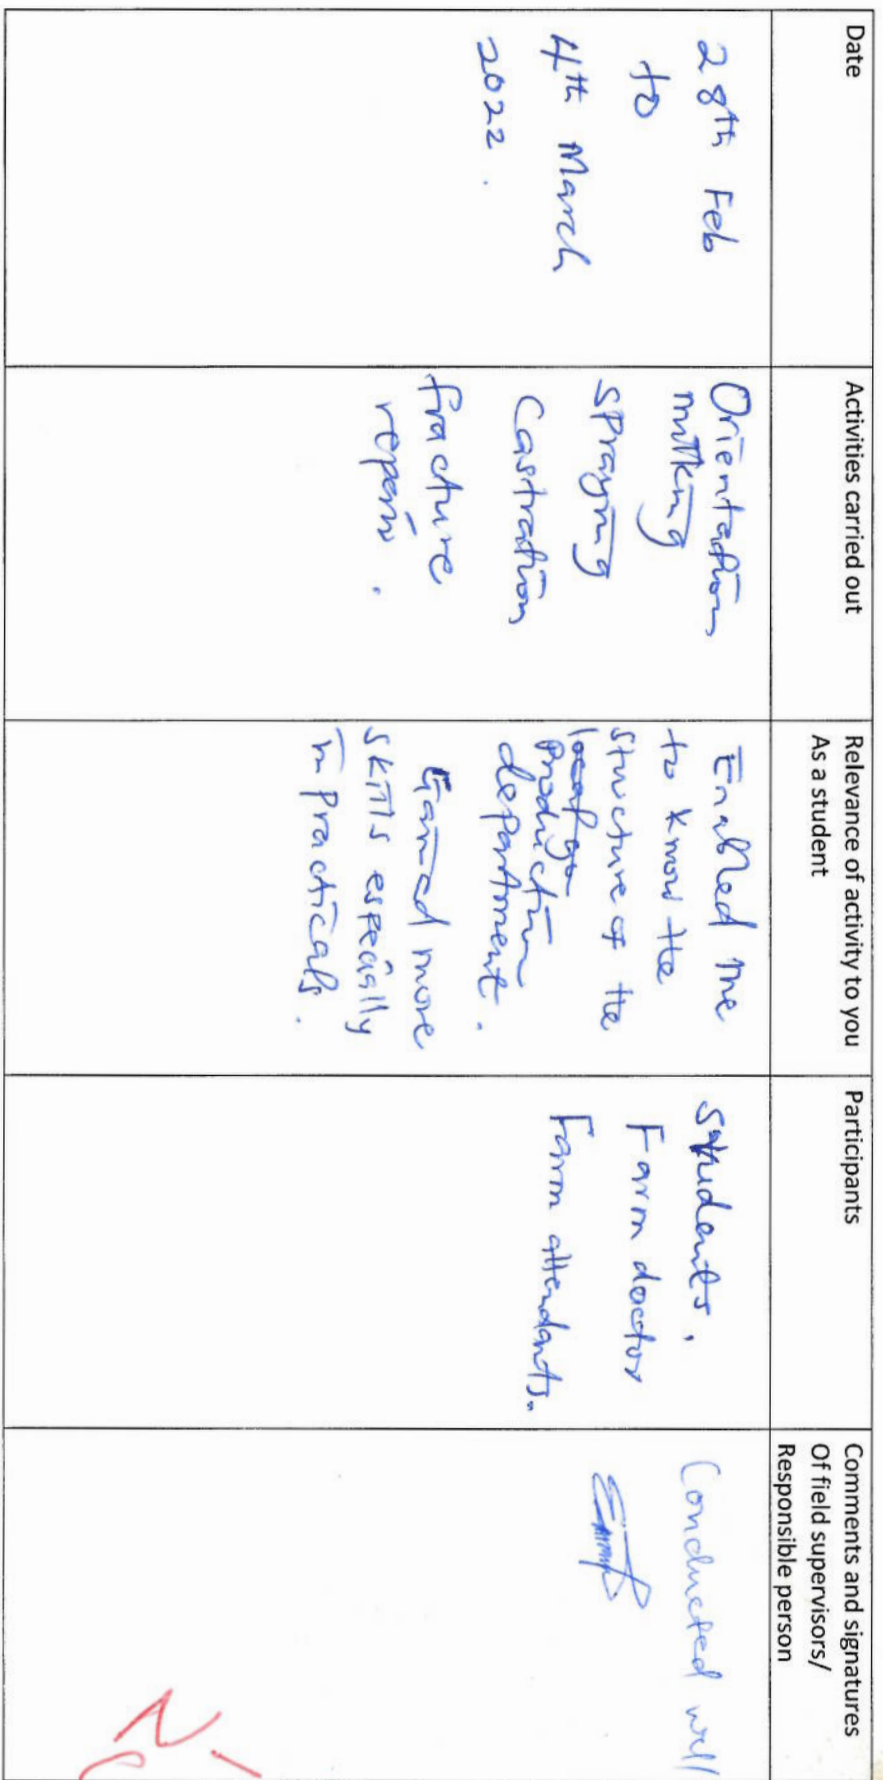 Date
Activities carried out
Relevance of activity to you
As a student
Participants
Comments and signatures
Of field supervisors/
Responsible person
28th Feb
to
4th March
2022.
Orientation
milking
spraying
Castration
fracture
repair.
Enabled me
to know the
structure of the
production
department.
Gained more
skills especially
in practicals.
Students.
Farm doctor
Farm attendants.
Conducted well